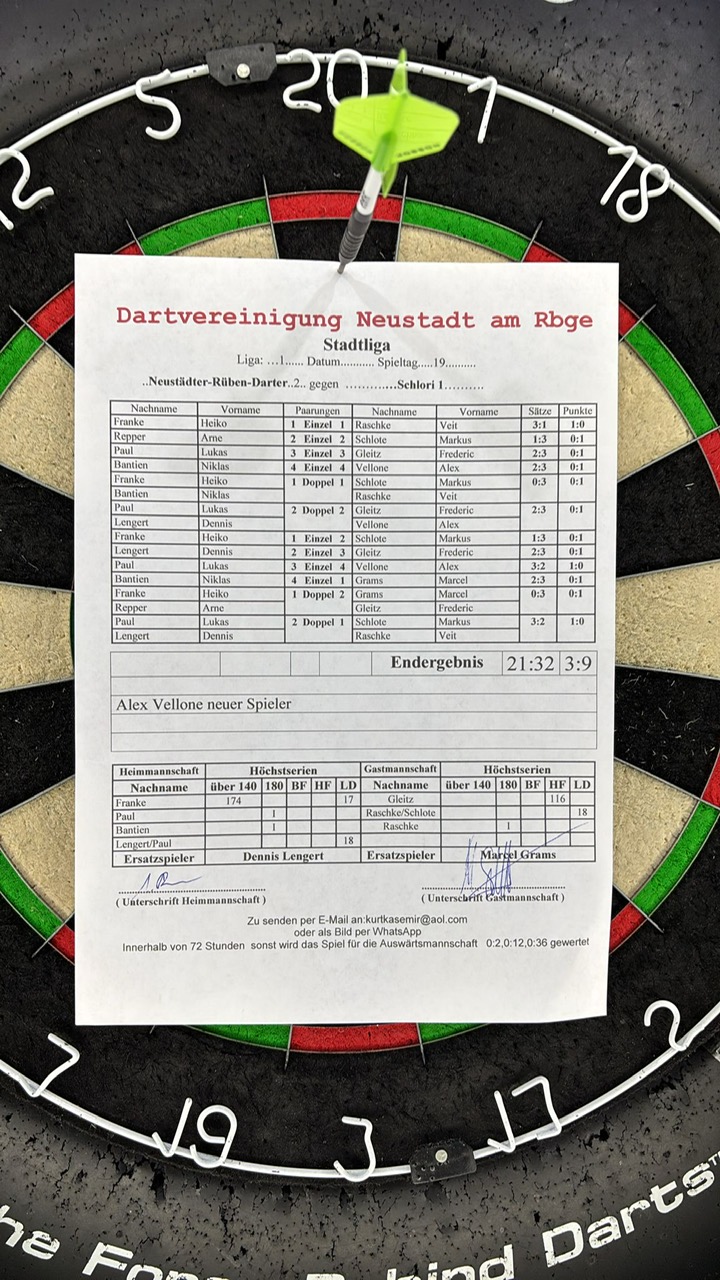 5 20 1
12 18
Dartvereinigung Neustadt am Rbge
Stadtliga
Liga: ...1...... Datum........... Spieltag.....19..........
..Neustädter-Rüben-Darter..2.. gegen ............Schlori 1.........
Nachname Vorname Paarungen Nachname Vorname Sätze Punkte
Franke Heiko 1 Einzel 1 Raschke Veit 3:1 1:0
Repper Arne 2 Einzel 2 Schlote Markus 1:3 0:1
Paul Lukas 3 Einzel 3 Gleitz Frederic 2:3 0:1
Bantien Niklas 4 Einzel 4 Vellone Alex 2:3 0:1
Franke Heiko 1 Doppel 1 Schlote Markus 0:3 0:1
Bantien Niklas Raschke Veit
Paul Lukas 2 Doppel 2 Gleitz Frederic 2:3 0:1
Lengert Dennis Vellone Alex
Franke Heiko 1 Einzel 2 Schlote Markus 1:3 0:1
Lengert Dennis 2 Einzel 3 Gleitz Frederic 2:3 0:1
Paul Lukas 3 Einzel 4 Vellone Alex 3:2 1:0
Bantien Niklas 4 Einzel 1 Grams Marcel 2:3 0:1
Franke Heiko 1 Doppel 2 Grams Marcel 0:3 0:1
Repper Arne Gleitz Frederic
Paul Lukas 2 Doppel 1 Schlote Markus 3:2 1:0
Lengert Dennis Raschke Veit
Endergebnis 21:32 3:9
Alex Vellone neuer Spieler
Heimmannschaft Höchstserien Gastmannschaft Höchstserien
Nachname über 140 180 BF HF LD Nachname über 140 180 BF HF LD
Franke 174 17 Gleitz 116
Paul 1 Raschke/Schlote 18
Bantien 1 Raschke 1
Lengert/Paul 18
Ersatzspieler Dennis Lengert Ersatzspieler Marcel Grams
( Unterschrift Heimmannschaft ) ( Unterschrift Gastmannschaft )
Zu senden per E-Mail an:kurtkasemir@aol.com
oder als Bild per WhatsApp
Innerhalb von 72 Stunden sonst wird das Spiel für die Auswärtsmannschaft 0:2,0:12,0:36 gewertet
7 2
19 3 17
Behind Darts™